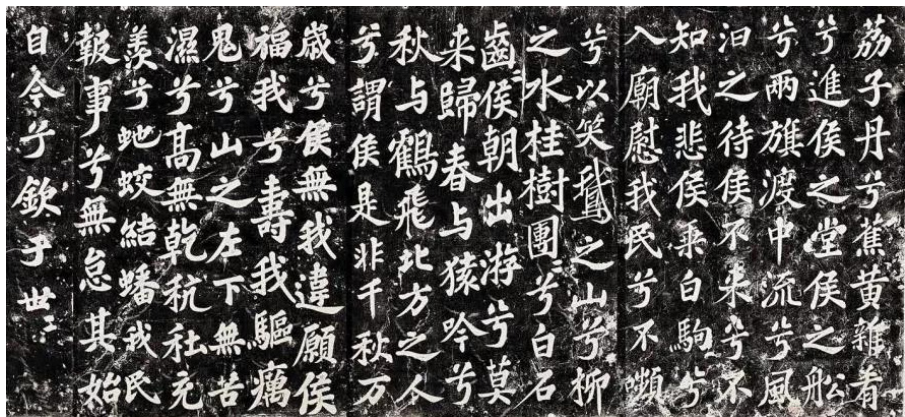 荔子丹兮蕉黄雜肴
兮進侯之堂侯之船
兮兩旗渡中流兮風
汩之待侯不來兮不
知我悲侯乘白駒兮
入廟慰我民兮不嚬
兮以笑鵞之山兮柳
之水桂樹團〻兮白石
齒〻侯朝出游兮莫
来歸春与猿吟兮
秋与鶴飛北方之人
兮謂侯是非千秋万
歲兮侯無我違願侯
福我兮壽我驅癘
鬼兮山之左下無苦
濕兮高無乾秔稌充
羨兮虵蛟結蟠我民
報事兮無怠其始
自今兮欽于世〻